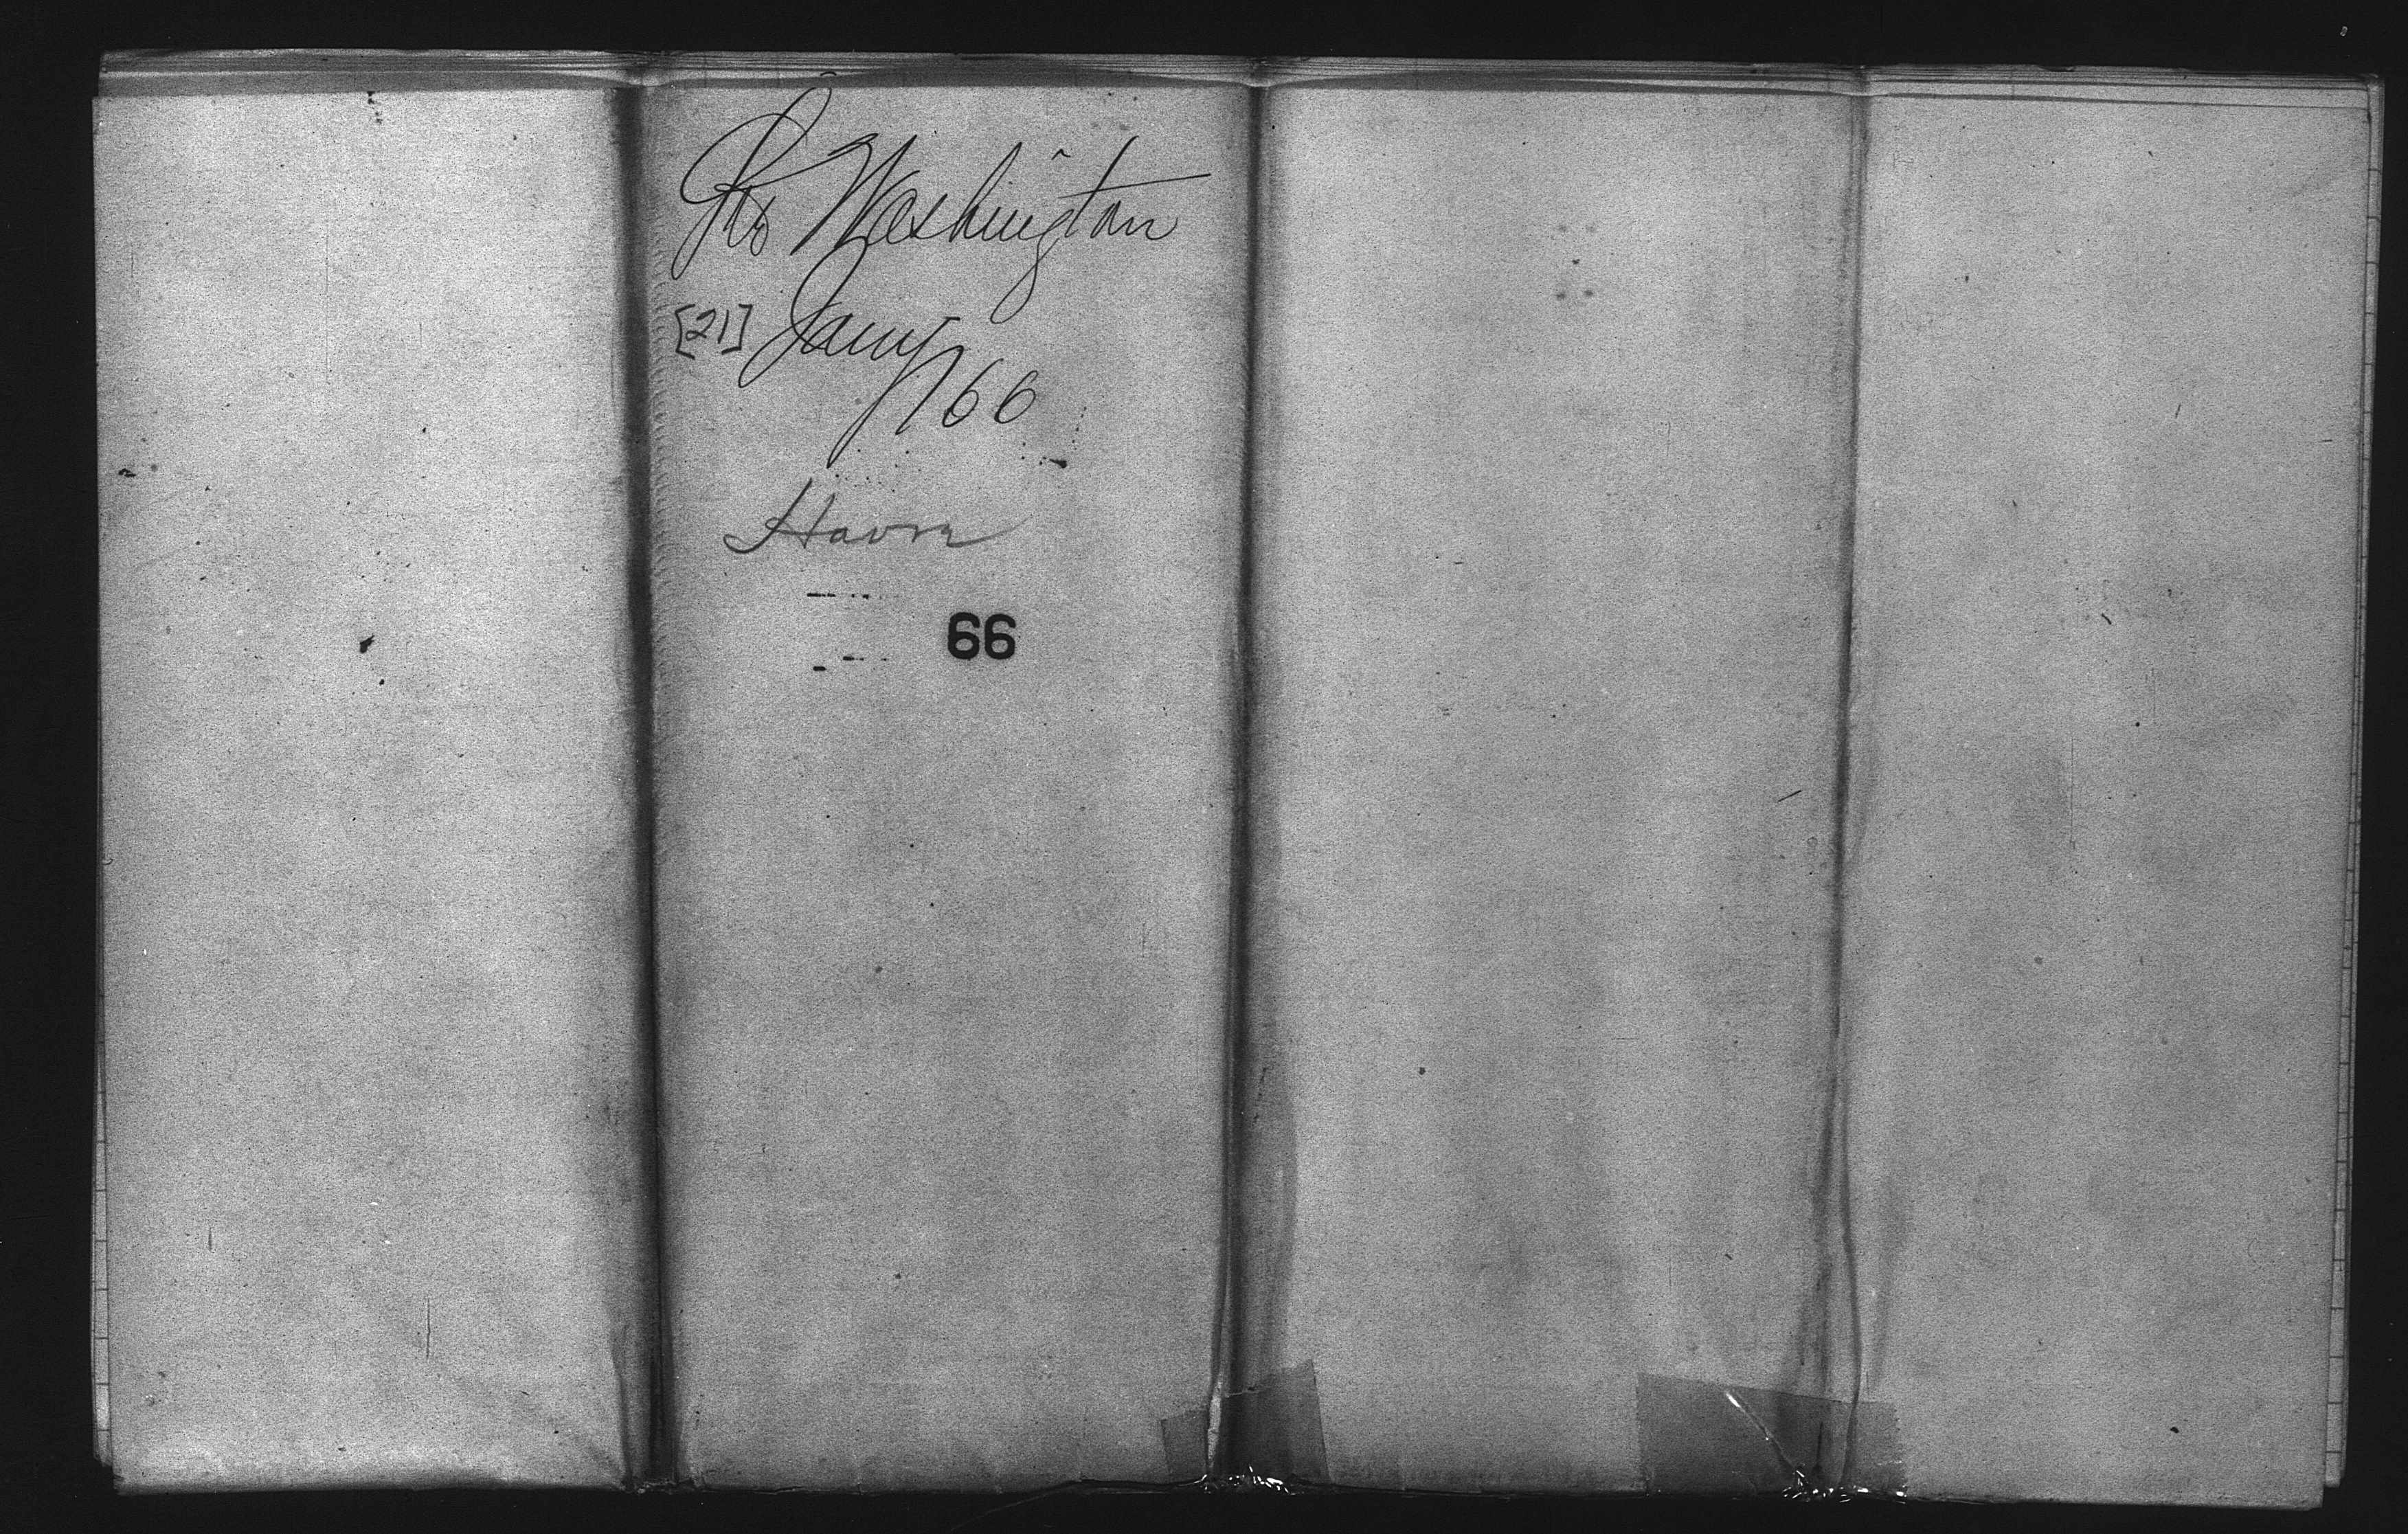 Str Washington
[21] Jany
/66
Havre
66